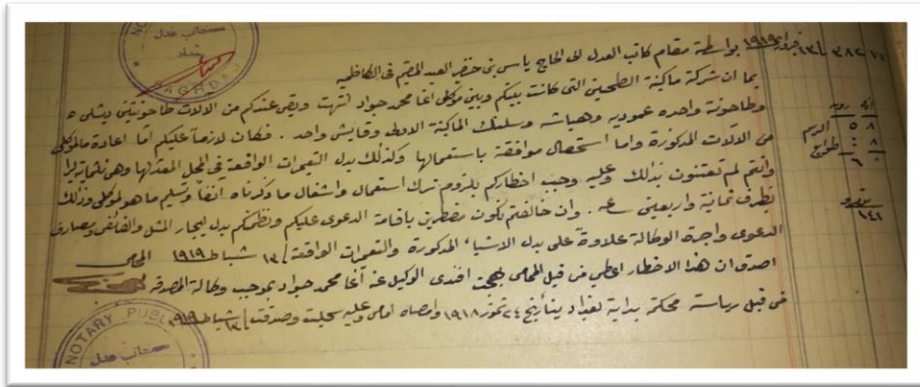 NOTARY PUBLIC
كاتب عدل
بغداد
BAGHDAD
٧٧ ٣٨٢ ١٣ فبروار ١٩١٩ بواسطة مقام كاتب العدل الى الحاج ياس بن خضر العبد المقيم في الكاظمية
بما ان شركة ماكينة الطحين التي كانت بينكم وبين موكلي اغا محمد جواد انتهت وبقى عندكم من الالات طاحونتين
وطاحونة واحده عموديه وسلندر الماكينة الاولى وقايش واحد . فكان لازماً عليكم اما اعادة ما لموكلي
من الآلات المذكورة واما استحصال موافقة باستعمالها وكذلك بدل التعميرات الواقعة في المحل
وانتم لم تعتنون بذلك وعليه وجب اخطاركم بلزوم ترك استعمال واشغال ما ذكرناه انفاً وتسليم ما هو لموكلي وذلك
بظرف ثمانية واربعين ساعه . وان خالفتم نكون مضطرين باقامة الدعوى عليكم ونطلبكم بدل ايجار المثل والفائض ومصارف
الدعوى واجرة الوكالة علاوة على بدل الاشياء المذكورة والتعميرات الواقعة ١٣ شباط ١٩١٩ المحامي
اصدق ان هذا الاخطار اعطي من قبل المحامي بهجت افندي الوكيل عن آغا محمد جواد بموجب وكالة المصدقة
من قبل رياسة محكمة بداية بغداد بتاريخ ٢٤ تموز ١٩١٨ وامضاه امامي وعليه سجلت وصدقت ١٣ شباط ١٩١٩
انه روبيه
٨ ٥ الرسم
٨ طوابع
٦
نومرو
١٤١
NOTARY PUBLIC
كاتب عدل